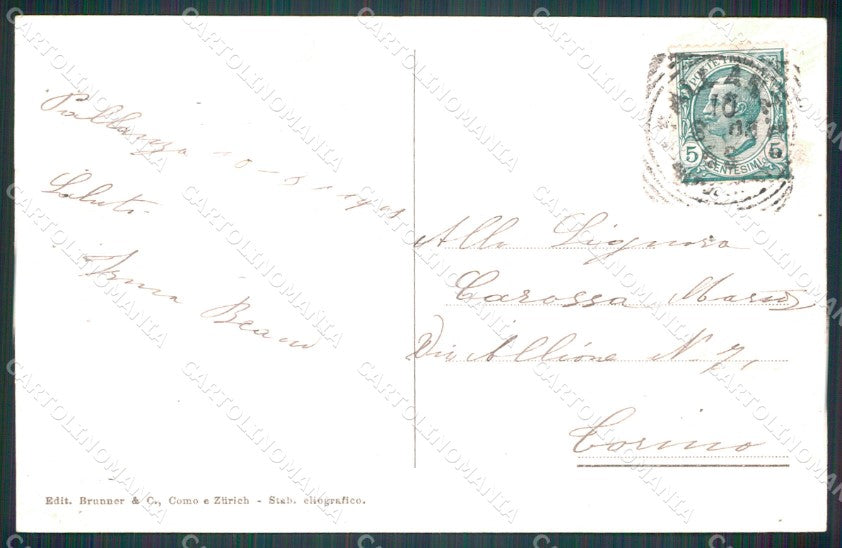 Pallanza 10-8-1908
Saluti.
Irma
Alla Signora
Carossa Maria
Via Allione N 7,
Torino
Edit. Brunner & C., Como e Zürich - Stab. eliografico.
POSTE ITALIANE
5 5
CENTESIMI
10
8
CARTOLINOMANIA